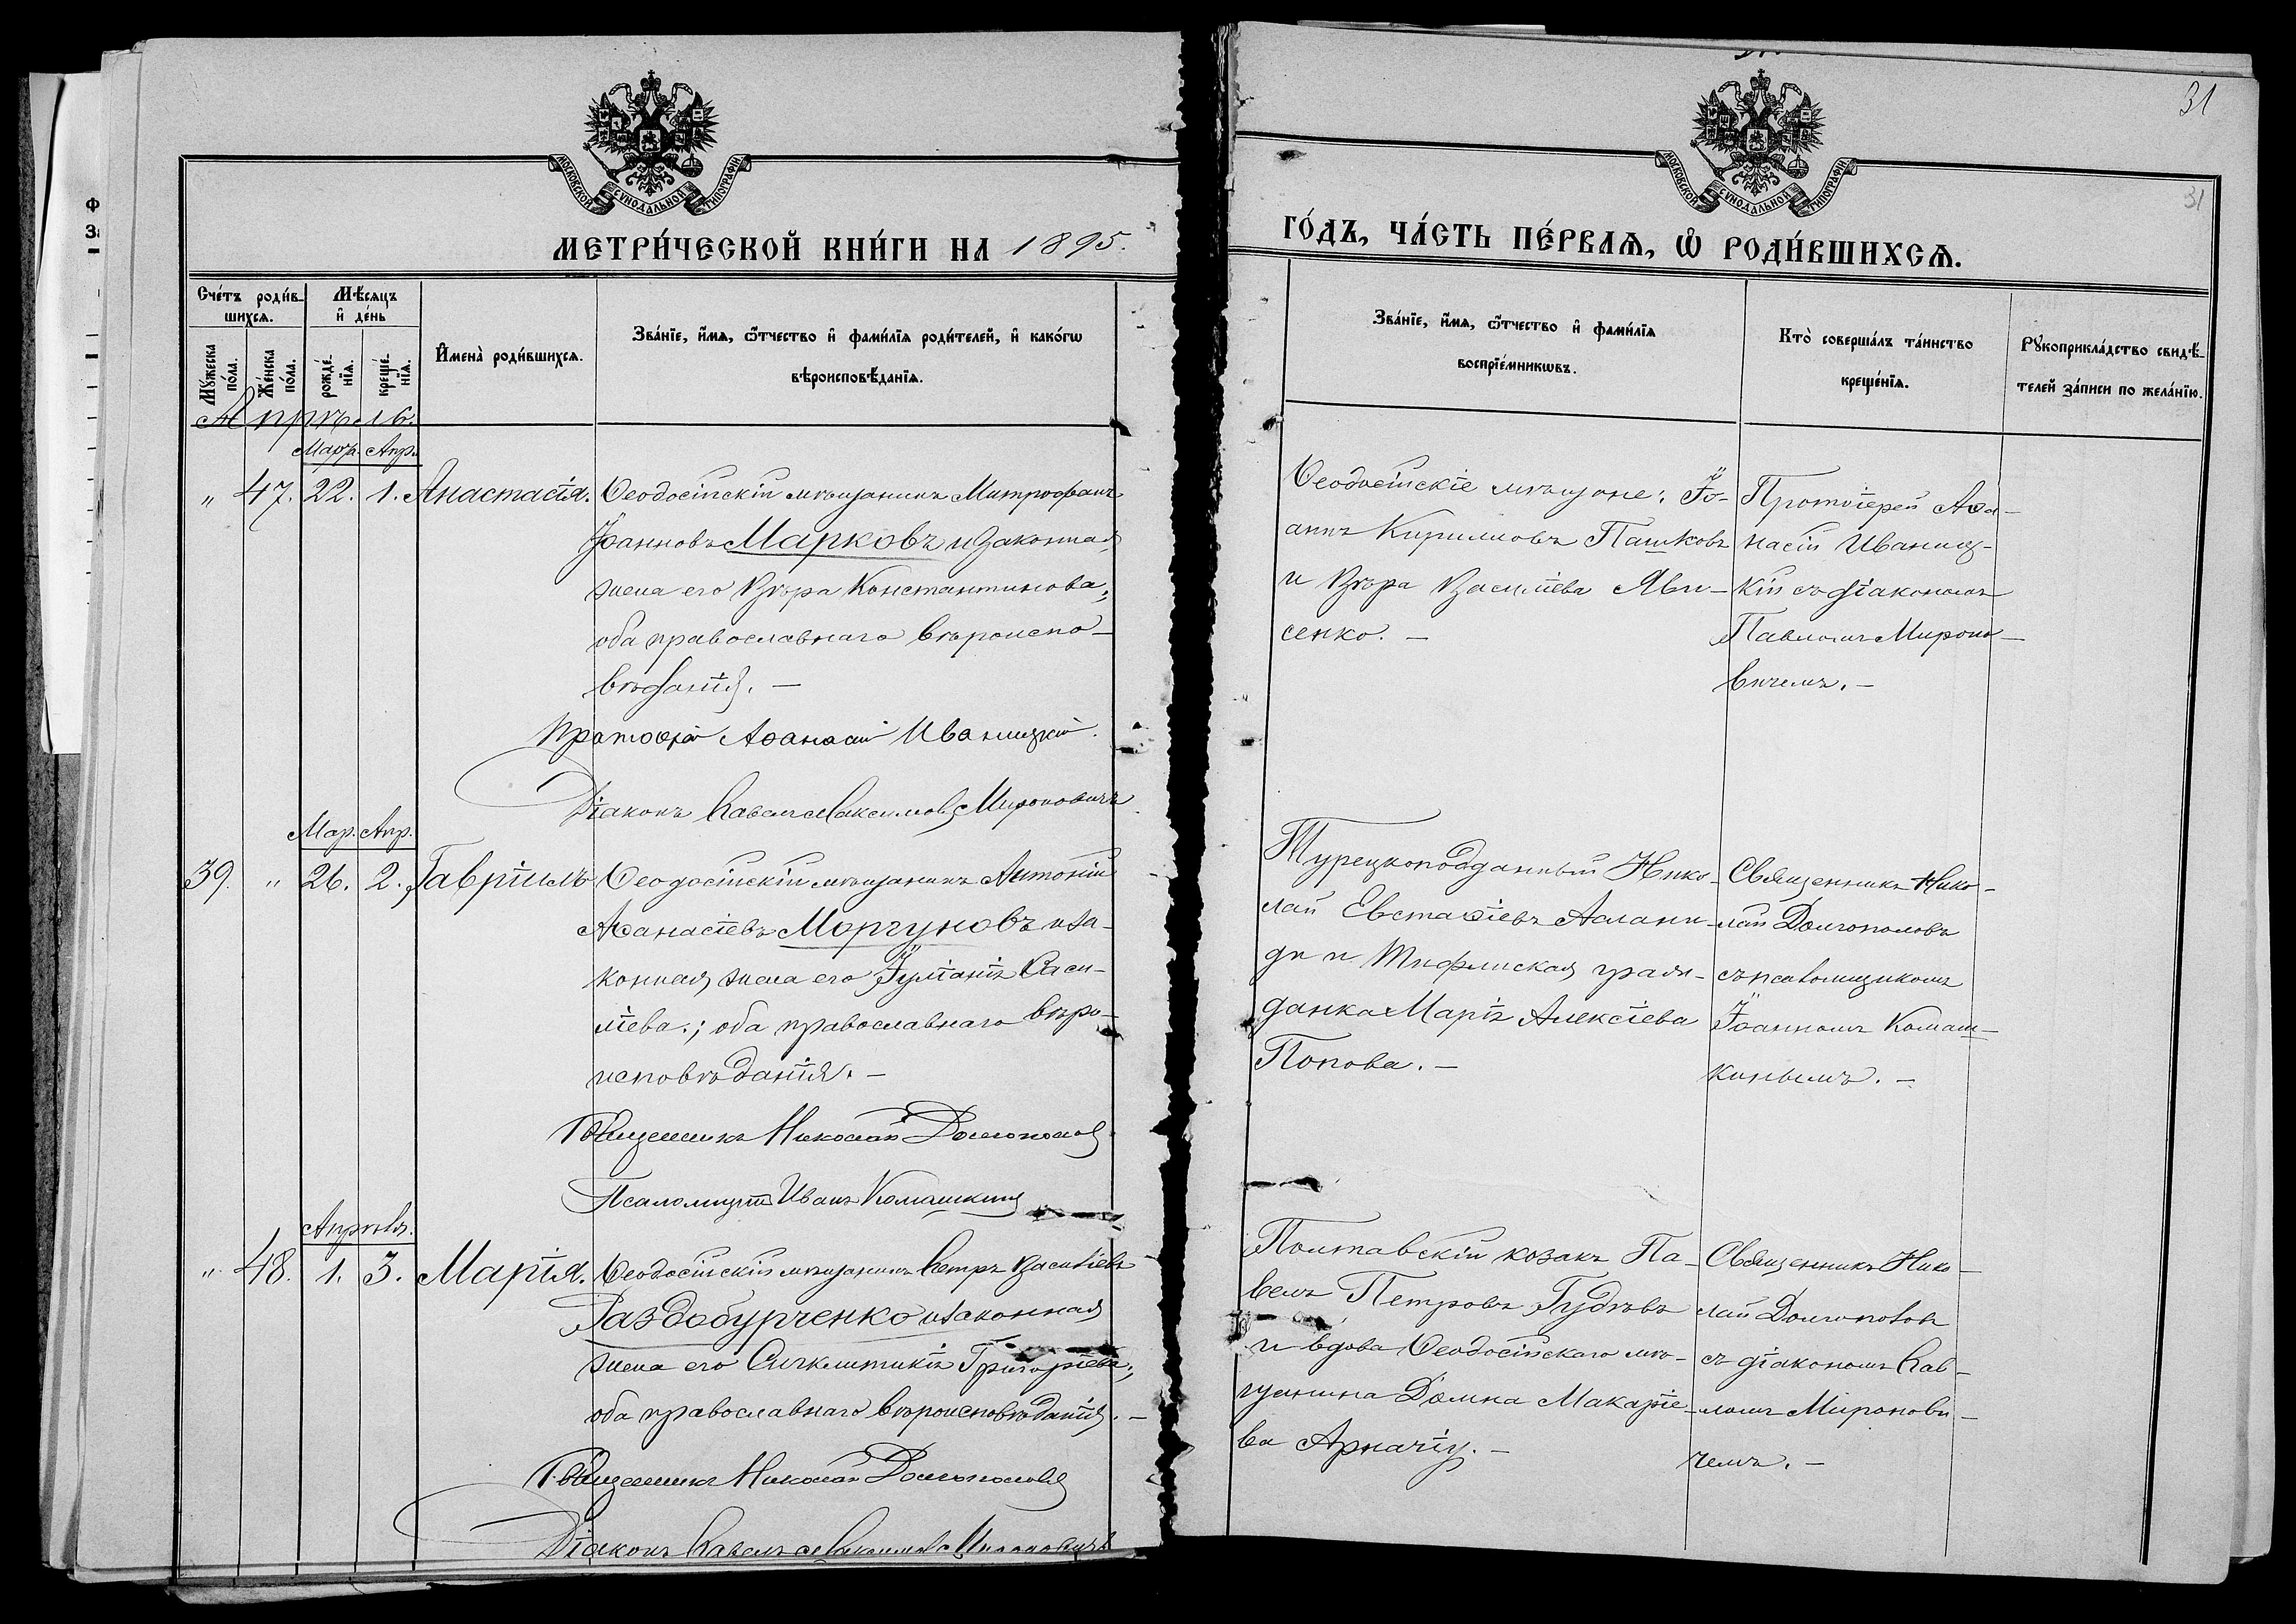 31
31
МОСКОВСКОЙ СУНОДАЛЬНОЙ ТИПОГРАФІИ
МОСКОВСКОЙ СУНОДАЛЬНОЙ ТИПОГРАФІИ
МЕТРИ́ЧЕСКОЙ КНИ́ГИ НА 1895.
ГО́ДЪ, ЧА́СТЬ ПЕ́РВАѦ, Ѡ РОДИ́ВШИХСѦ.
Сче́тъ роди́в-
шихсѧ.
Мѣ́сѧцъ
и҆ де́нь
Мꙋ́жеска по́ла.
Же́нска по́ла.
рожде́-нїѧ.
креще́-нїѧ.
И҆мена̀ роди́вшихсѧ.
Зва́нїе, и҆́мѧ, ѻ҆́тчество и҆ фами́лїѧ роди́телей, и҆ како́гѡ
вѣроисповѣ́данїѧ.
Зва́нїе, и҆́мѧ, ѻ҆́тчество и҆ фами́лїѧ
воспрїе́мникѡвъ.
Кто̀ соверша́лъ та́инство
креще́нїѧ.
Рꙋкоприкла́дство свидѣ́-
телей за́писи по жела́нїю.
Апрѣль.
Мартъ. Апр.
„ 47. 22. 1. Анастасія.
Ѳеодосійскій мѣщанинъ Митрофанъ
Іоанновъ Марковъ и законная
жена его Вѣра Константинова;
оба православнаго вѣроиспо-
вѣданія. —
Протоіерей Аѳанасій Иваницкій.
Діаконъ Павелъ Максимовъ Мироновичъ
Ѳеодосійскіе мѣщане: Іо-
аннъ Кирилловъ Пашковъ
и Вѣра Василіева Яви-
сенко. —
Протоіерей Аѳа-
насій Иваниц-
кій съ діакономъ
Павломъ Мироно-
вичемъ. —
Мар. Апр.
39. „ 26. 2. Гавріилъ
Ѳеодосійскій мѣщанинъ Антоній
Аѳанасіевъ Моргуновъ и за-
конная жена его Іуліанія Васи-
ліева; оба православнаго вѣро-
исповѣданія. —
Священникъ Николай Долгополовъ
Псаломщикъ Иванъ Комашкинъ
Турецкоподданный Нико-
лай Евстаѳіевъ Аслани-
ди и Тифлиская граж-
данка Марія Алексіева
Попова. —
Священникъ Нико-
лай Долгополовъ
съ псаломщикомъ
Іоанномъ Комаш-
кинымъ. —
Апрѣль.
„ 48. 1. 3. Марія.
Ѳеодосійскій мѣщанинъ Петръ Василіевъ
Раздобурченко и законная
жена его Синклитикія Григоріева;
оба православнаго вѣроисповѣданія. —
Священникъ Николай Долгополовъ
Діаконъ Павелъ Максимовъ Мироновичъ
Полтавскій козакъ Па-
велъ Петровъ Гудѣвъ
и вдова Ѳеодосійскаго мѣ-
щанина Домна Макаріе-
ва Арначіу. —
Священникъ Нико-
лай Долгополовъ
съ діакономъ Пав-
ломъ Миронови-
чемъ. —